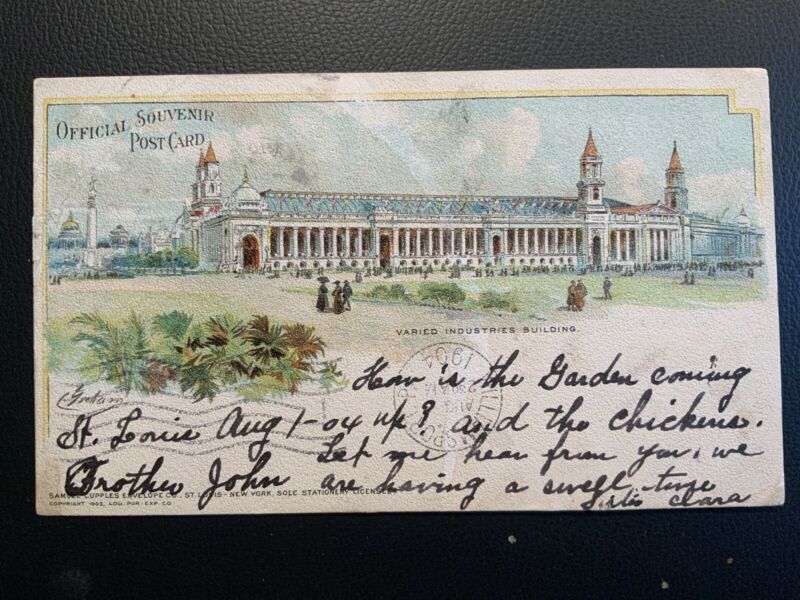 OFFICIAL SOUVENIR
POST CARD
VARIED INDUSTRIES BUILDING.
1904
AUG
How is the Garden coming
St. Louis Aug 1-04 up? and the chickens.
Let me hear from you, we
Brother John are having a swell time
Sis Clara
SAMUEL CUPPLES ENVELOPE CO., ST. LOUIS - NEW YORK, SOLE STATIONERY LICENSEE
COPYRIGHT 1903, LOU. PUR. EXP. CO.